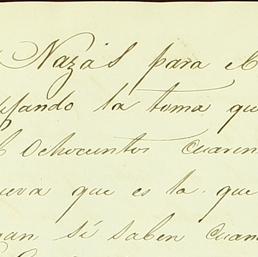 Nazás para el
usando la toma que
Ochocientos cuaren
ueva que es la que
gan si saben cuan